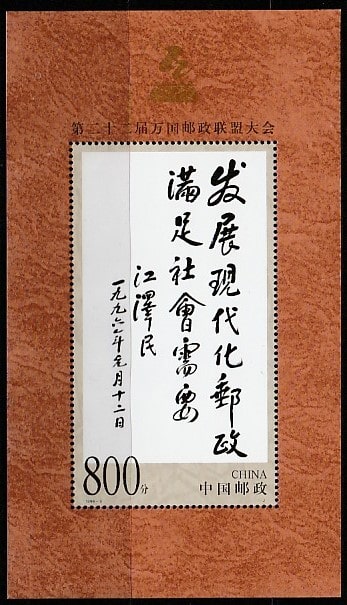 第二十二届万国邮政联盟大会
发展現代化郵政
满足社會需要
江澤民
一九九六年元月十二日
800分
CHINA
中国邮政